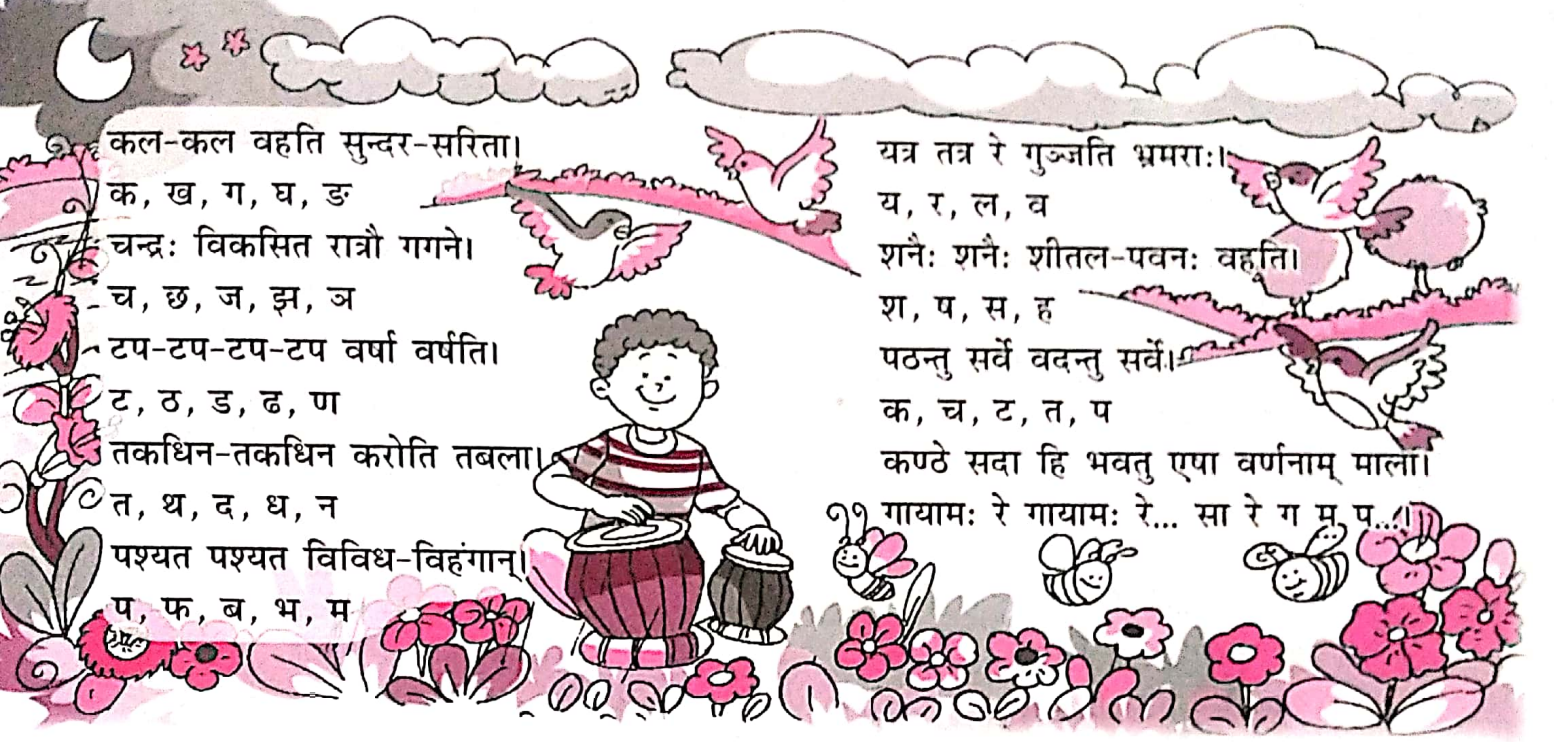 कल-कल वहति सुन्दर-सरिता।
क, ख, ग, घ, ङ
चन्द्रः विकसित रात्रौ गगने।
च, छ, ज, झ, ञ
टप-टप-टप-टप वर्षा वर्षति।
ट, ठ, ड, ढ, ण
तकधिन-तकधिन करोति तबला।
त, थ, द, ध, न
पश्यत पश्यत विविध-विहंगान्।
प, फ, ब, भ, म
यत्र तत्र रे गुञ्जति भ्रमराः।
य, र, ल, व
शनैः शनैः शीतल-पवनः वहति।
श, ष, स, ह
पठन्तु सर्वे वदन्तु सर्वे।
क, च, ट, त, प
कण्ठे सदा हि भवतु एषा वर्णनाम् माला।
गायामः रे गायामः रे... सा रे ग म प...।